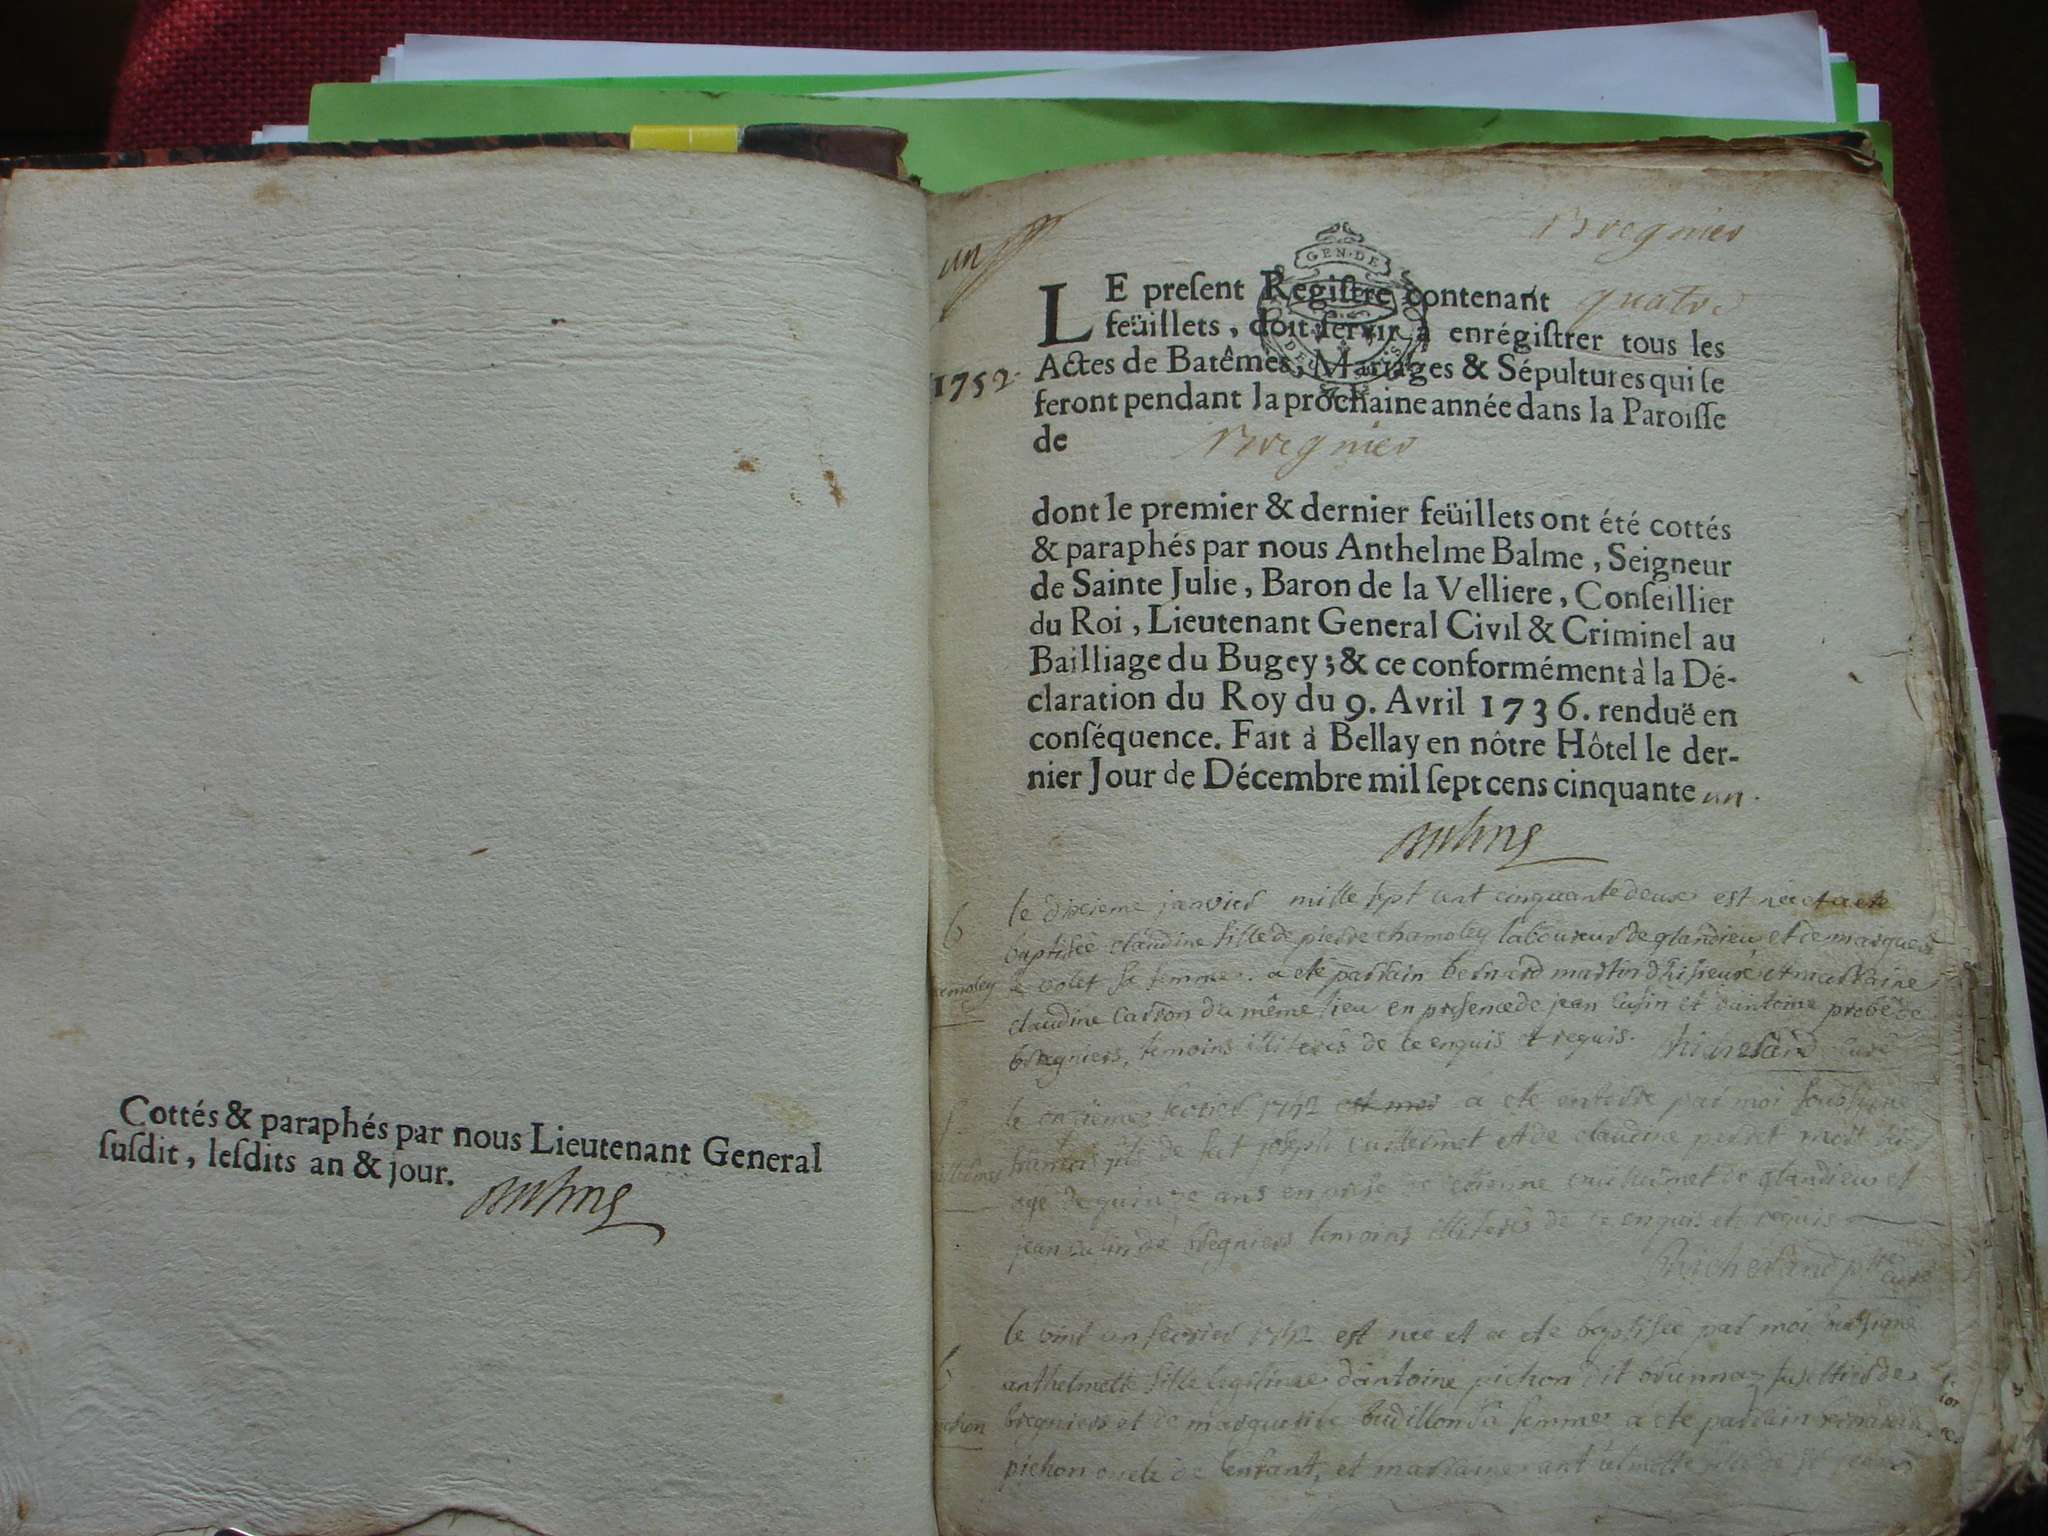 Cottés & paraphés par nous Lieutenant General
susdit, lesdits an & jour.
un
Bregnier
GEN·DE
LE preſent Regiſtre contenant quatre
feüillets, doit ſervir à enrégiſtrer tous les
1752. Actes de Batêmes, Mariages & Sépultures qui ſe
feront pendant la prochaine année dans la Paroiſſe
de Bregnier
dont le premier & dernier feüillets ont été cottés
& paraphés par nous Anthelme Balme, Seigneur
de Sainte Julie, Baron de la Velliere, Conſeillier
du Roi, Lieutenant General Civil & Criminel au
Bailliage du Bugey; & ce conformément à la Dé-
claration du Roy du 9. Avril 1736. renduë en
conſéquence. Fait à Bellay en nôtre Hôtel le der-
nier Jour de Décembre mil ſept cens cinquante un.
b le dixieme janvier mille sept cent cinquante deux est née et a eté
baptisée claudine fille de pierre chamoley laboureur de glandieu et de
volet sa femme. a eté parrain bernard martin et marraine
claudine carron du même lieu en presence de jean cusin et d'antoine
bregniers, temoins illiterés de ce enquis et requis. curé
le onzieme fevrier 1752 a eté enterre par moi soussigné
fils de fut joseph cuillermet et de claudine perret
agé de quinze ans en presence cuillermet de glandieu et
jean cusin de bregniers temoins illiterés de ce enquis et requis
Richerand ptre curé
b le vint un fevrier 1752 est née et a eté baptisée par moi soussigné
anthelmette fille legitime d'antoine pichon dit de
bregniers et de marguerite budillon sa femme a eté parrain
pichon oncle de l'enfant, et marraine anthelmette